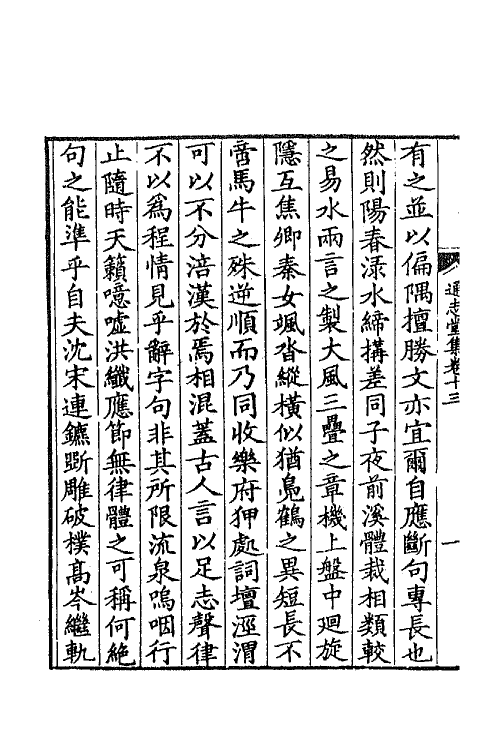 通志堂集卷十三
一
有之並以偏隅擅勝文亦宜爾自應斷句專長也
然則陽春淥水締搆差同子夜前溪體裁相類較
之易水兩言之製大風三疊之章機上盤中廻旋
隱互焦卿秦女颯沓縱橫似猶鳧鶴之異短長不
啻馬牛之殊逆順而乃同收樂府狎處詞壇涇渭
可以不分涪漢於焉相混蓋古人言以足志聲律
不以為程情見乎辭字句非其所限流泉嗚咽行
止隨時天籟噫嘘洪纖應節無律體之可稱何絶
句之能準乎自夫沈宋連鑣斲雕破樸高岑繼軌